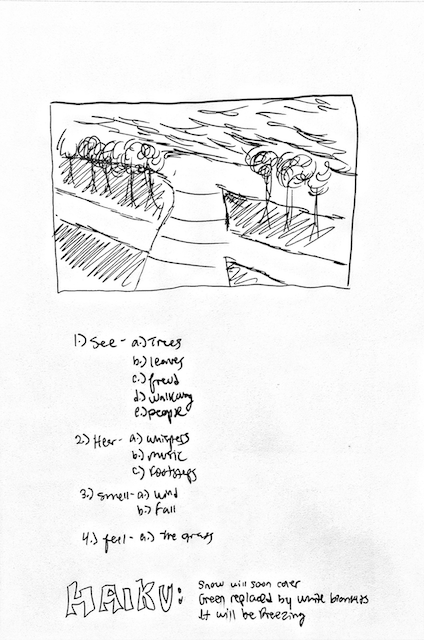 1.) See - a.) Trees
b.) leaves
c.) freud
d.) walking
e.) people
2.) Hear - a.) whispers
b.) music
c.) footsteps
3.) smell - a.) wind
b.) Fall
4.) feel - a.) The grass
HAIKU: Snow will soon cover
Green replaced by white blankits
It will be freezing